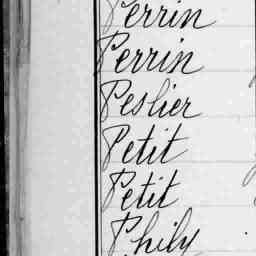 Perrin
Perrin
Peslier
Petit
Petit
Phily